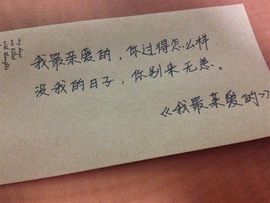 我最亲爱的，你过得怎么样
没我的日子，你别来无恙。
《我最亲爱的》